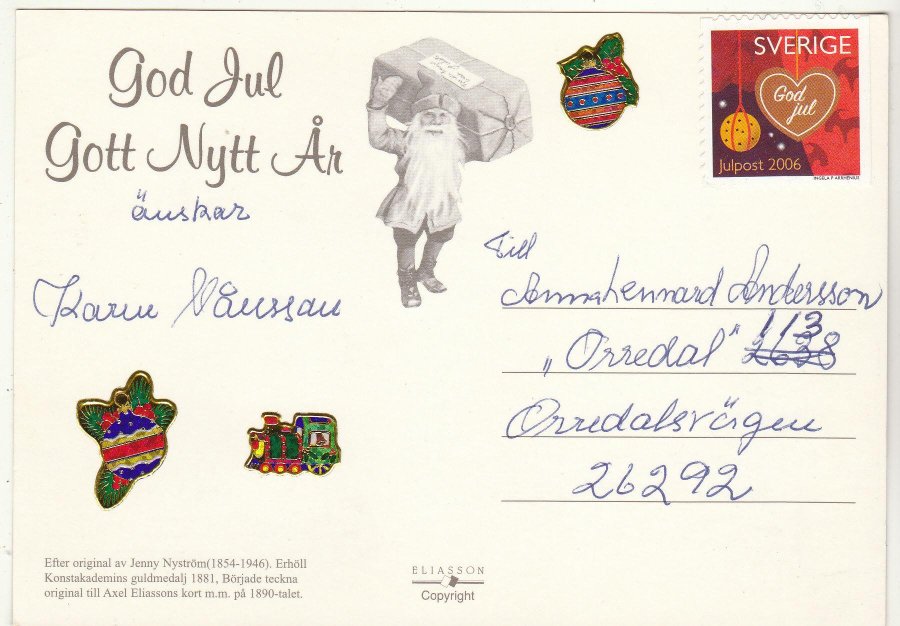 God Jul
Gott Nytt År
önskar
Karin Månsson
SVERIGE
God
jul
Julpost 2006
INGELA P ARRHENIUS
Till
Anna Lennard Andersson
113
"Orredal"
Orredalsvägen
26292
Efter original av Jenny Nyström(1854-1946). Erhöll
Konstakademins guldmedalj 1881, Började teckna
original till Axel Eliassons kort m.m. på 1890-talet.
ELIASSON
Copyright